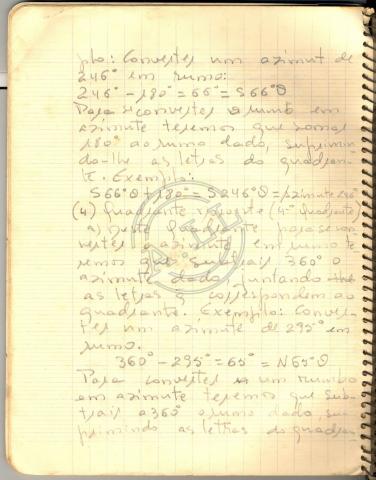 plo: Converter um azimut de
246° em rumo:
246° - 180° = 66° = S66°O
Para se converter o rumo em
azimute teremos que somar
180° ao rumo dado, suprimin
do-lhe as letras do quadran-
te. Exemplo:
S66°O + 180° = S246°O = azimute 246°
(4) Quadrante (4º Quadrante)
quadrante para se con
verter o azimute em rumo te
remos que subtrair 360° o
azimute dado juntando
as letras q correspondem ao
quadrante. Exemplo: Conver-
ter um azimute de 295° em
rumo.
360° - 295° = 65° = N65°O
Para converter um rumbo
em azimute teremos que sub-
trair a 360° o rumo dado, su-
primindo as letras do quadran